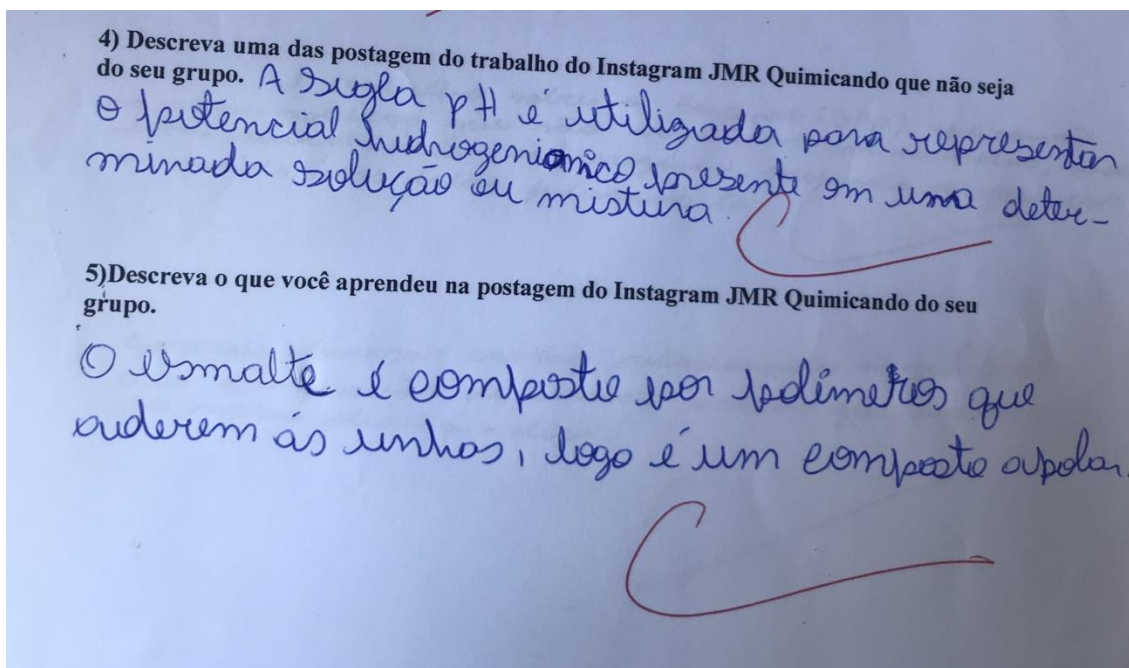 4) Descreva uma das postagem do trabalho do Instagram JMR Quimicando que não seja
do seu grupo. A sigla pH é utilizada para representar
o potencial hidrogeniônico presente em uma deter-
minada solução ou mistura.
5)Descreva o que você aprendeu na postagem do Instagram JMR Quimicando do seu
grupo.
O esmalte é composto por polímeros que
aderem ás unhas, logo é um composto apolar.